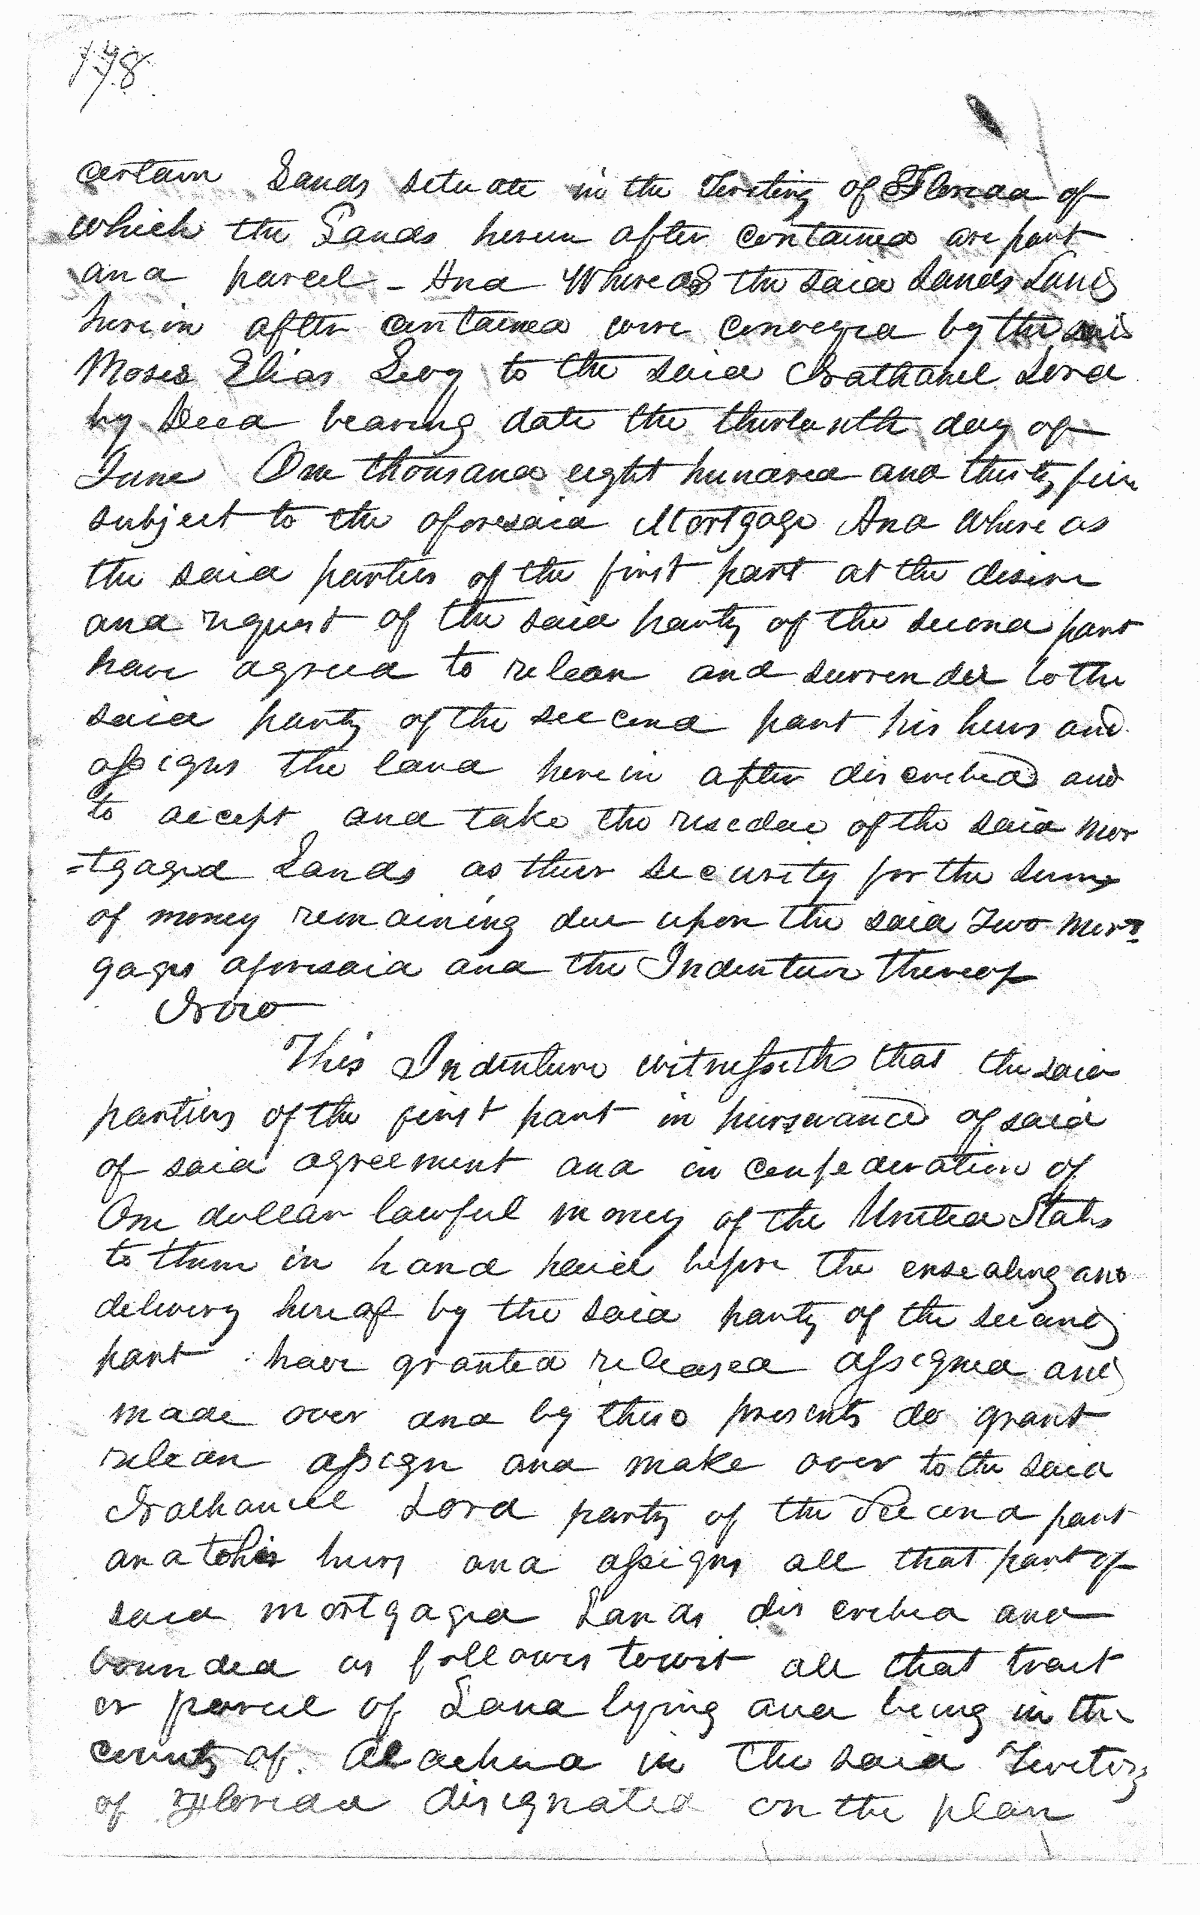 178
certain Lands situate in the Teritiry of Florida of
which the Lands herein after contained are part
and parcel - And Whereas the said Lands Lands
herein after contained were conveyed by the said
Moses Elias Levy to the said Nathaniel Lord
by Deed bearing date the thirteenth day of
June One thousand eight hundred and thirty five
subject to the aforesaid Mortgage And Where as
the said parties of the first part at the desire
and request of the said party of the second part
have agreed to release and surrender to the
said party of the second part his heirs and
assigns the land herein after discribed and
to accept and take the resedue of the said Mor
=tgaged Lands as their security for the sums
of money remaining due upon the said Two Mort
gages aforesaid and the Indenture thereof
Now
This Indenture witnesseth that the said
parties of the first part in pursuance of said
of said agreement and in consideration of
One dollar lawful money of the United States
to them in hand paid before the ensealing and
delivery hereof by the said party of the second
part have granted released assigned and
made over and by these presents do grant
release assign and make over to the said
Nathaniel Lord party of the Second part
and to his heirs and assigns all that part of
said mortgaged Lands discribed and
bounded as follows towit all that tract
or parcel of Land lying and being in the
county of Alachua in the said Teritory
of Florida disignated on the plan